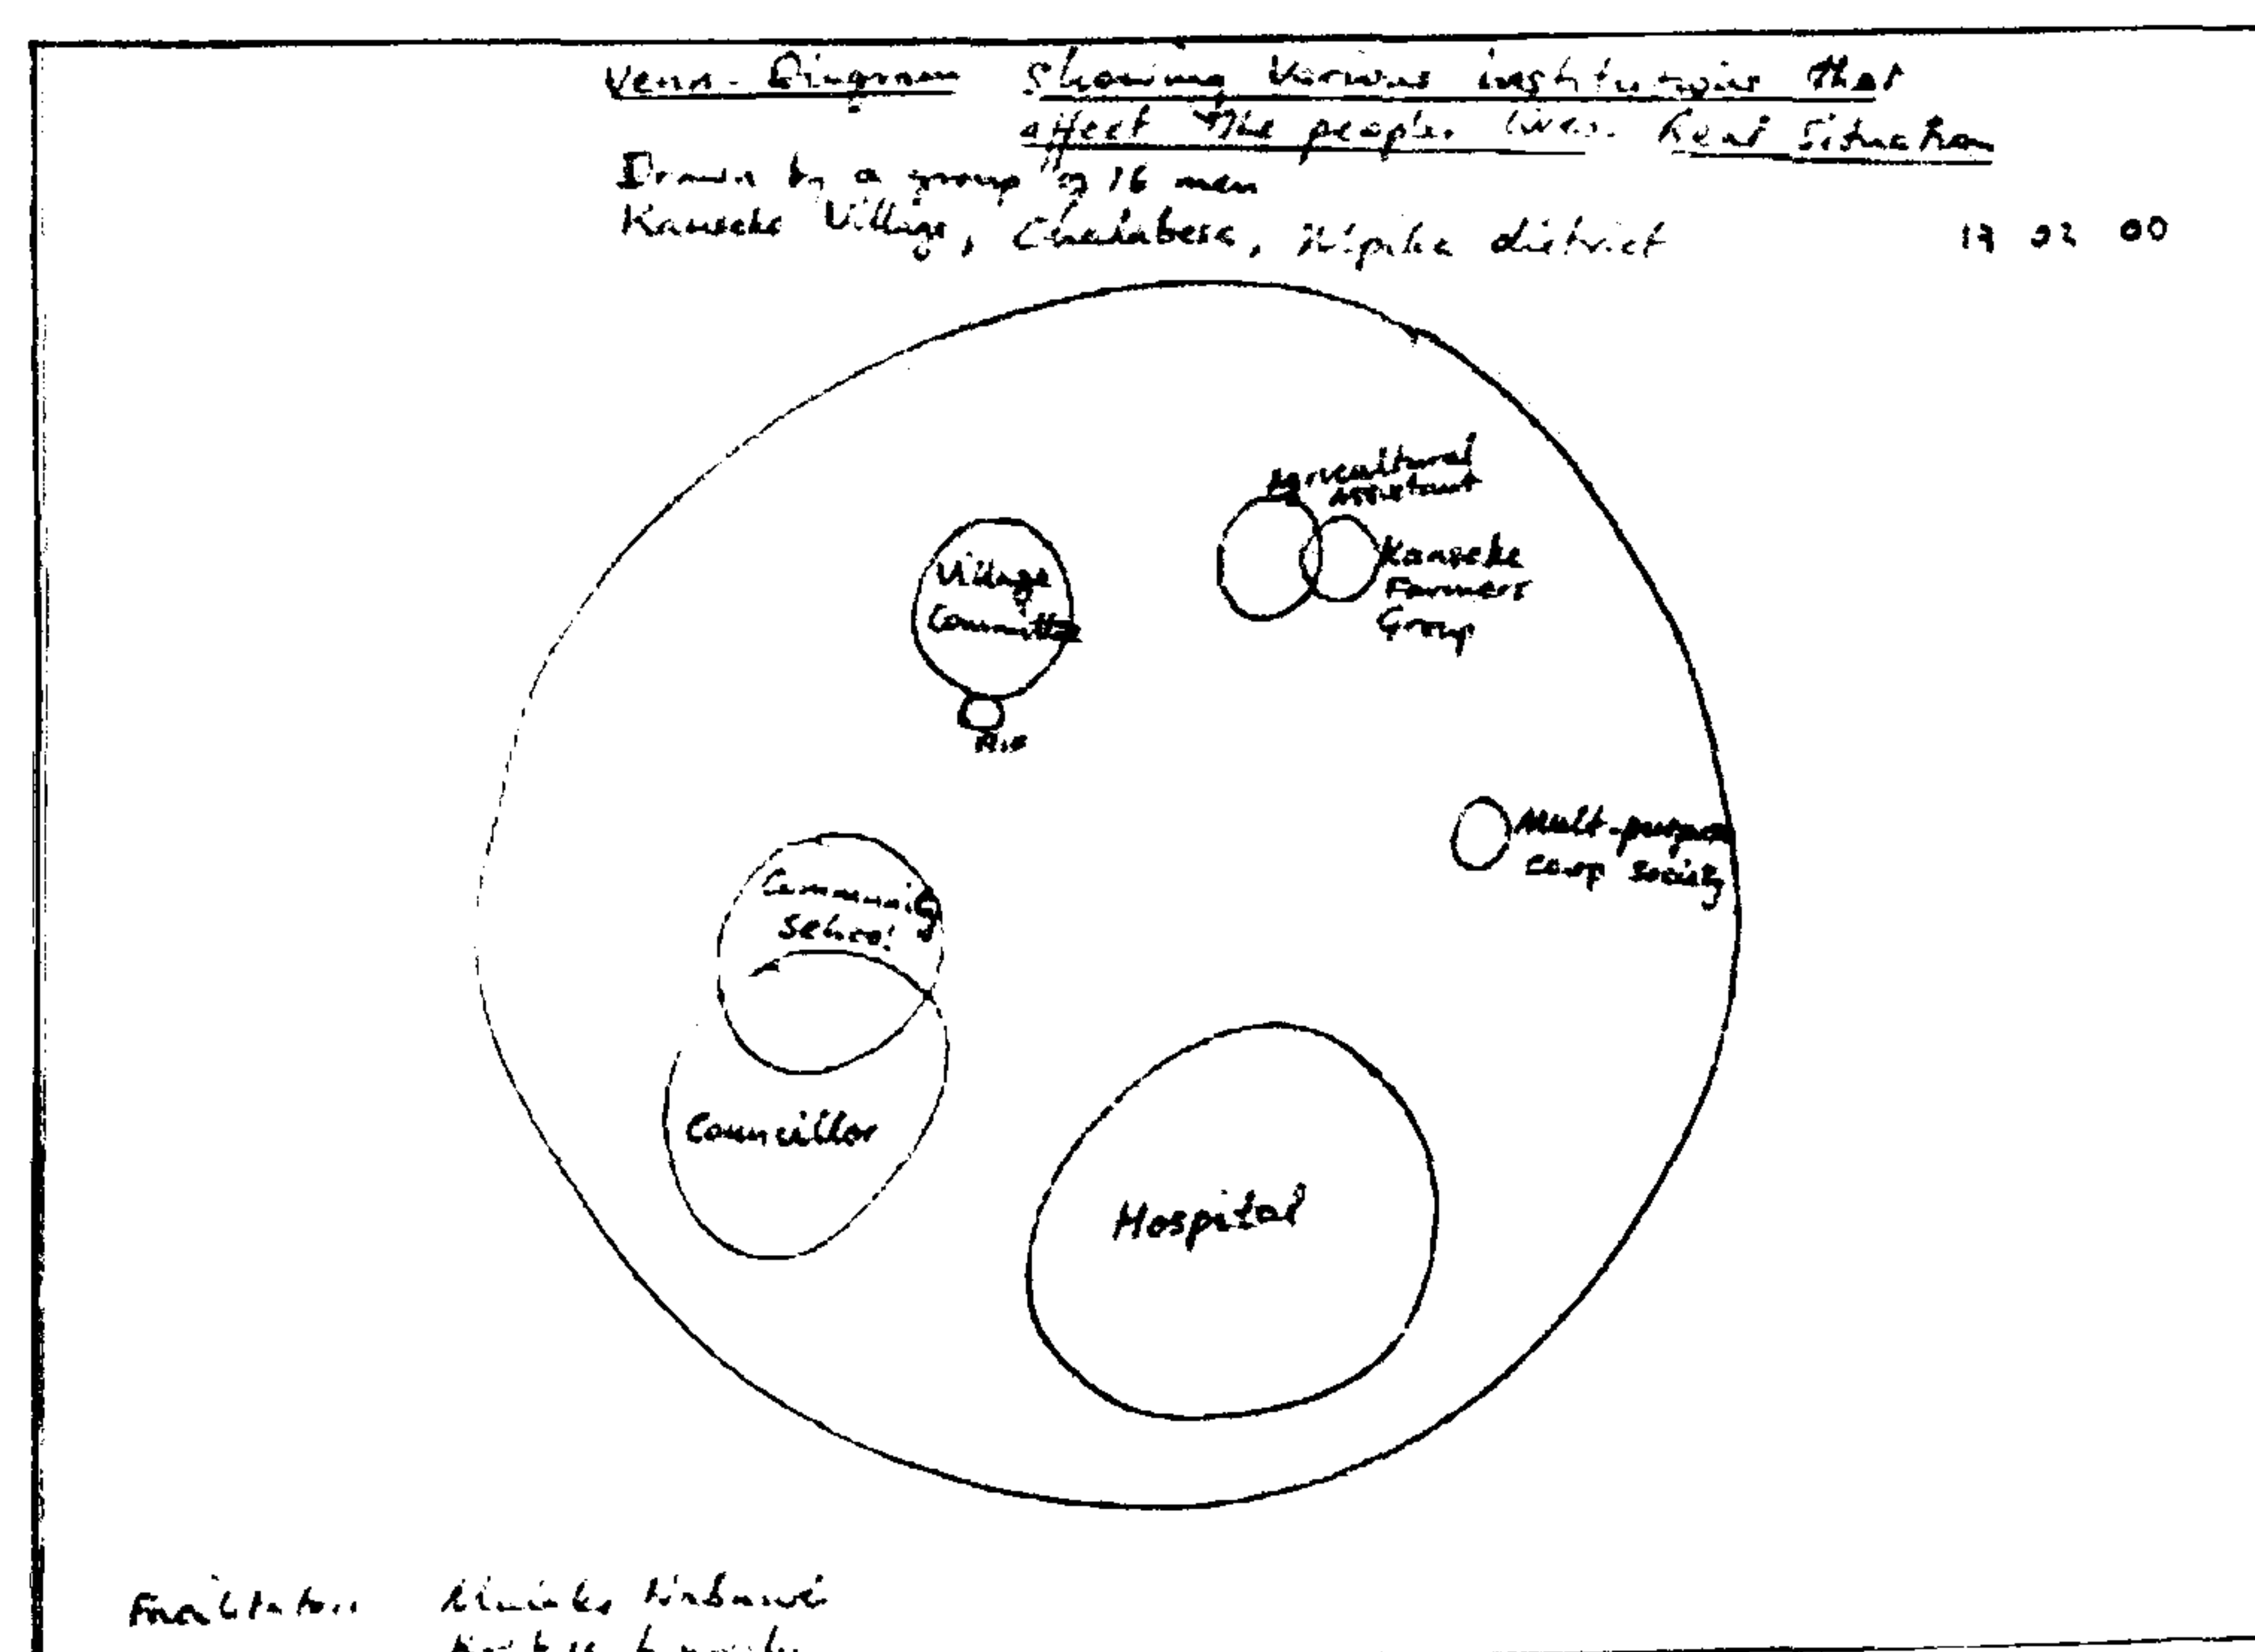 Venn-Diagram Showing Various institutions that
affect the people's lives. Real Situation
Drawn by a group of 16 men
Kanseke Village, Chalabesa, Mpika district 02 00
Agricultural
Assistant
Village
Committee
Kanseke
Farmers
Group
Mult-purpose
Coop Society
Community
School
Councillor
Hospital
Facilitators